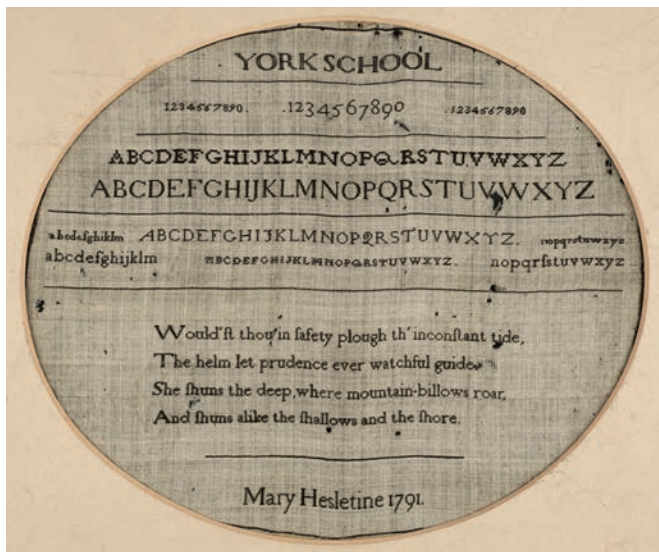 YORK SCHOOL
1234567890. .1234567890 .1234567890
ABCDEFGHIJKLMNOPQRSTUVWXYZ
ABCDEFGHIJKLMNOPQRSTUVWXYZ
abcdefghiklm ABCDEFGHIJKLMNOPQRSTUVWXYZ. nopqrstuwxyz
abcdefghijklm ABCDEFGHIJKLMNOPQRSTUVWXYZ. nopqrſstuvwxyz
Would'ſt thou in ſafety plough th' inconſtant tide,
The helm let prudence ever watchful guide
She ſhuns the deep, where mountain-billows roar,
And ſhuns alike the ſhallows and the ſhore.
Mary Hesletine 1791.